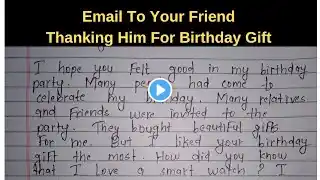 Email To Your Friend
Thanking Him For Birthday Gift
I hope you felt good in my birthday
party. Many had come to
celebrate my birthday. Many relatives
and friends were invited to the
party. They bought beautiful gifts
for me. But I liked your birthday
gift the most. How did you know
that I love a smart watch? I